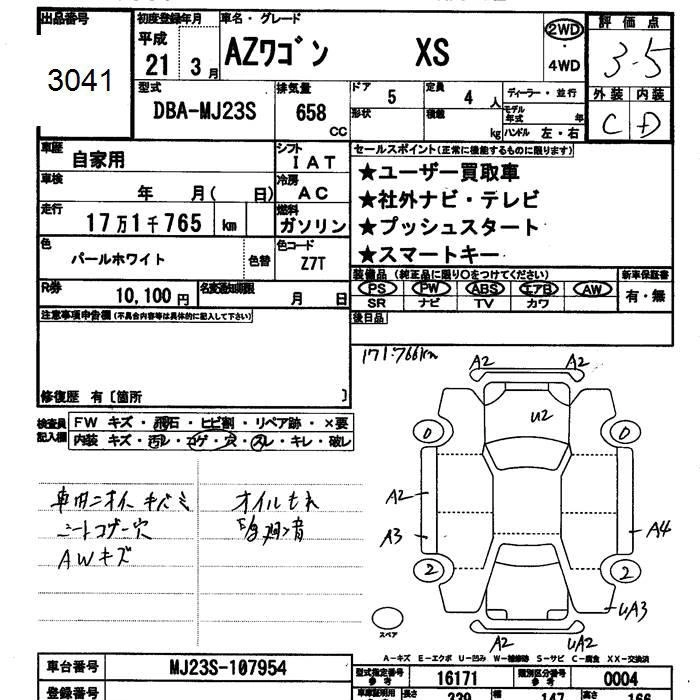 出品番号
3041
初度登録年月
平成
21 3月
車名・グレード
AZワゴン XS
2WD
・
4WD
評価点
3.5
外装 内装
C D
型式
DBA-MJ23S
排気量
658
CC
ドア
5
定員
4 人
形状
積載
kg
ディーラー・並行
モデル年式 年
ハンドル 左・右
車歴
自家用
シフト
I A T
車検
年 月( 日)
冷房
A C
走行
17万1千765 km
燃料
ガソリン
色
パールホワイト
色替
色コード
Z7T
R券
10,100 円
名変通知期限
月 日
セールスポイント(正常に機能するものに限ります)
★ユーザー買取車
★社外ナビ・テレビ
★プッシュスタート
★スマートキー
装備品 (純正品に限り○をつけてください)
PS PW ABS エアB AW
SR ナビ TV カワ
新車保証書
有・無
後日品
注意事項申告欄(不具合内容等は具体的に記入して下さい)
修復歴 有〔箇所 〕
171.766km
検査員記入欄
FW キズ・飛石・ヒビ割・リペア跡・×要
内装 キズ・汚レ・コゲ・穴・スレ・キレ・破レ
車内ニオイ キバミ
シートコゲ穴
AWキズ
オイルもれ
A2 A2
U2
0 0
A2
A3
A4
2 2
UA3
A2 UA2
スペア
A-キズ E-エクボ U-凹み W-補修跡 S-サビ C-腐食 XX-交換済
車台番号
MJ23S-107954
型式指定番号
参考
16171
類別区分番号
参考
0004
登録番号
車庫証明用
長さ
339
幅
147
高さ
166